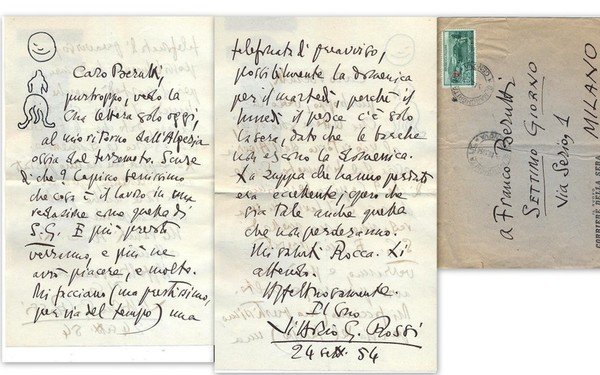 Caro Berutti,
purtroppo, vedo la
Sua lettera solo oggi,
al mio ritorno dall'Algeria
ossia dal terremoto. Scuse
di che? Capisco benissimo
che cosa è il lavoro in una
redazione come quella di
S.G. E più presto
verranno, e più ne
avrò piacere, e molto.
Mi facciano (ma prestissimo,
per via del tempo) una
telefonata di preavviso,
possibilmente la domenica
per il martedì, perché il
lunedì il pesce c'è solo
la sera, dato che le barche
non escono la domenica.
La zuppa che hanno perduto
era eccellente; spero che
sia tale anche quella
che non perderanno.
Mi saluti Rocca. Li
attendo.
Affettuosamente.
Il suo
Vittorio G. Rossi
24 sett. 54
a Franco Berutti
SETTIMO GIORNO
Via Senio, 1
MILANO
CORRIERE DELLA SERA